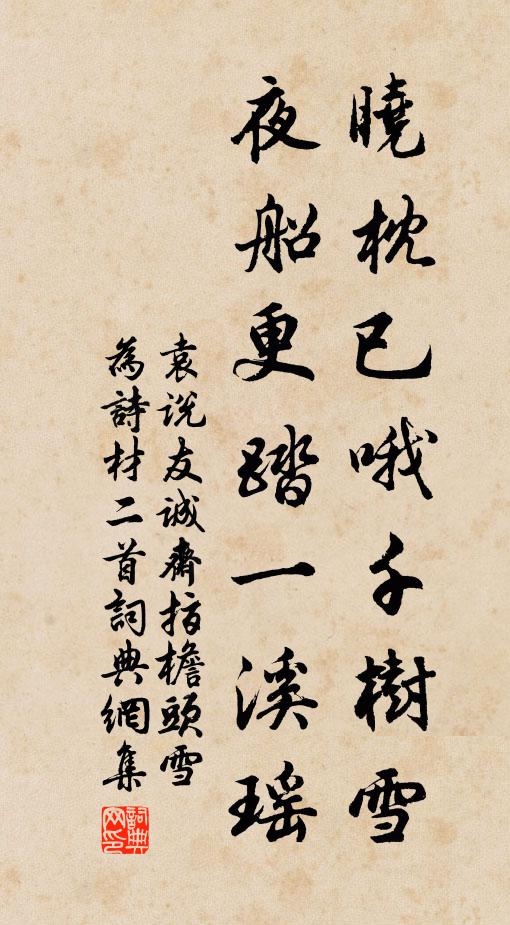 曉枕已哦千樹雪
夜船更踏一溪瑶
袁说友誠齋指檐頭雪
為詩材二首詞典網集
詞典网印